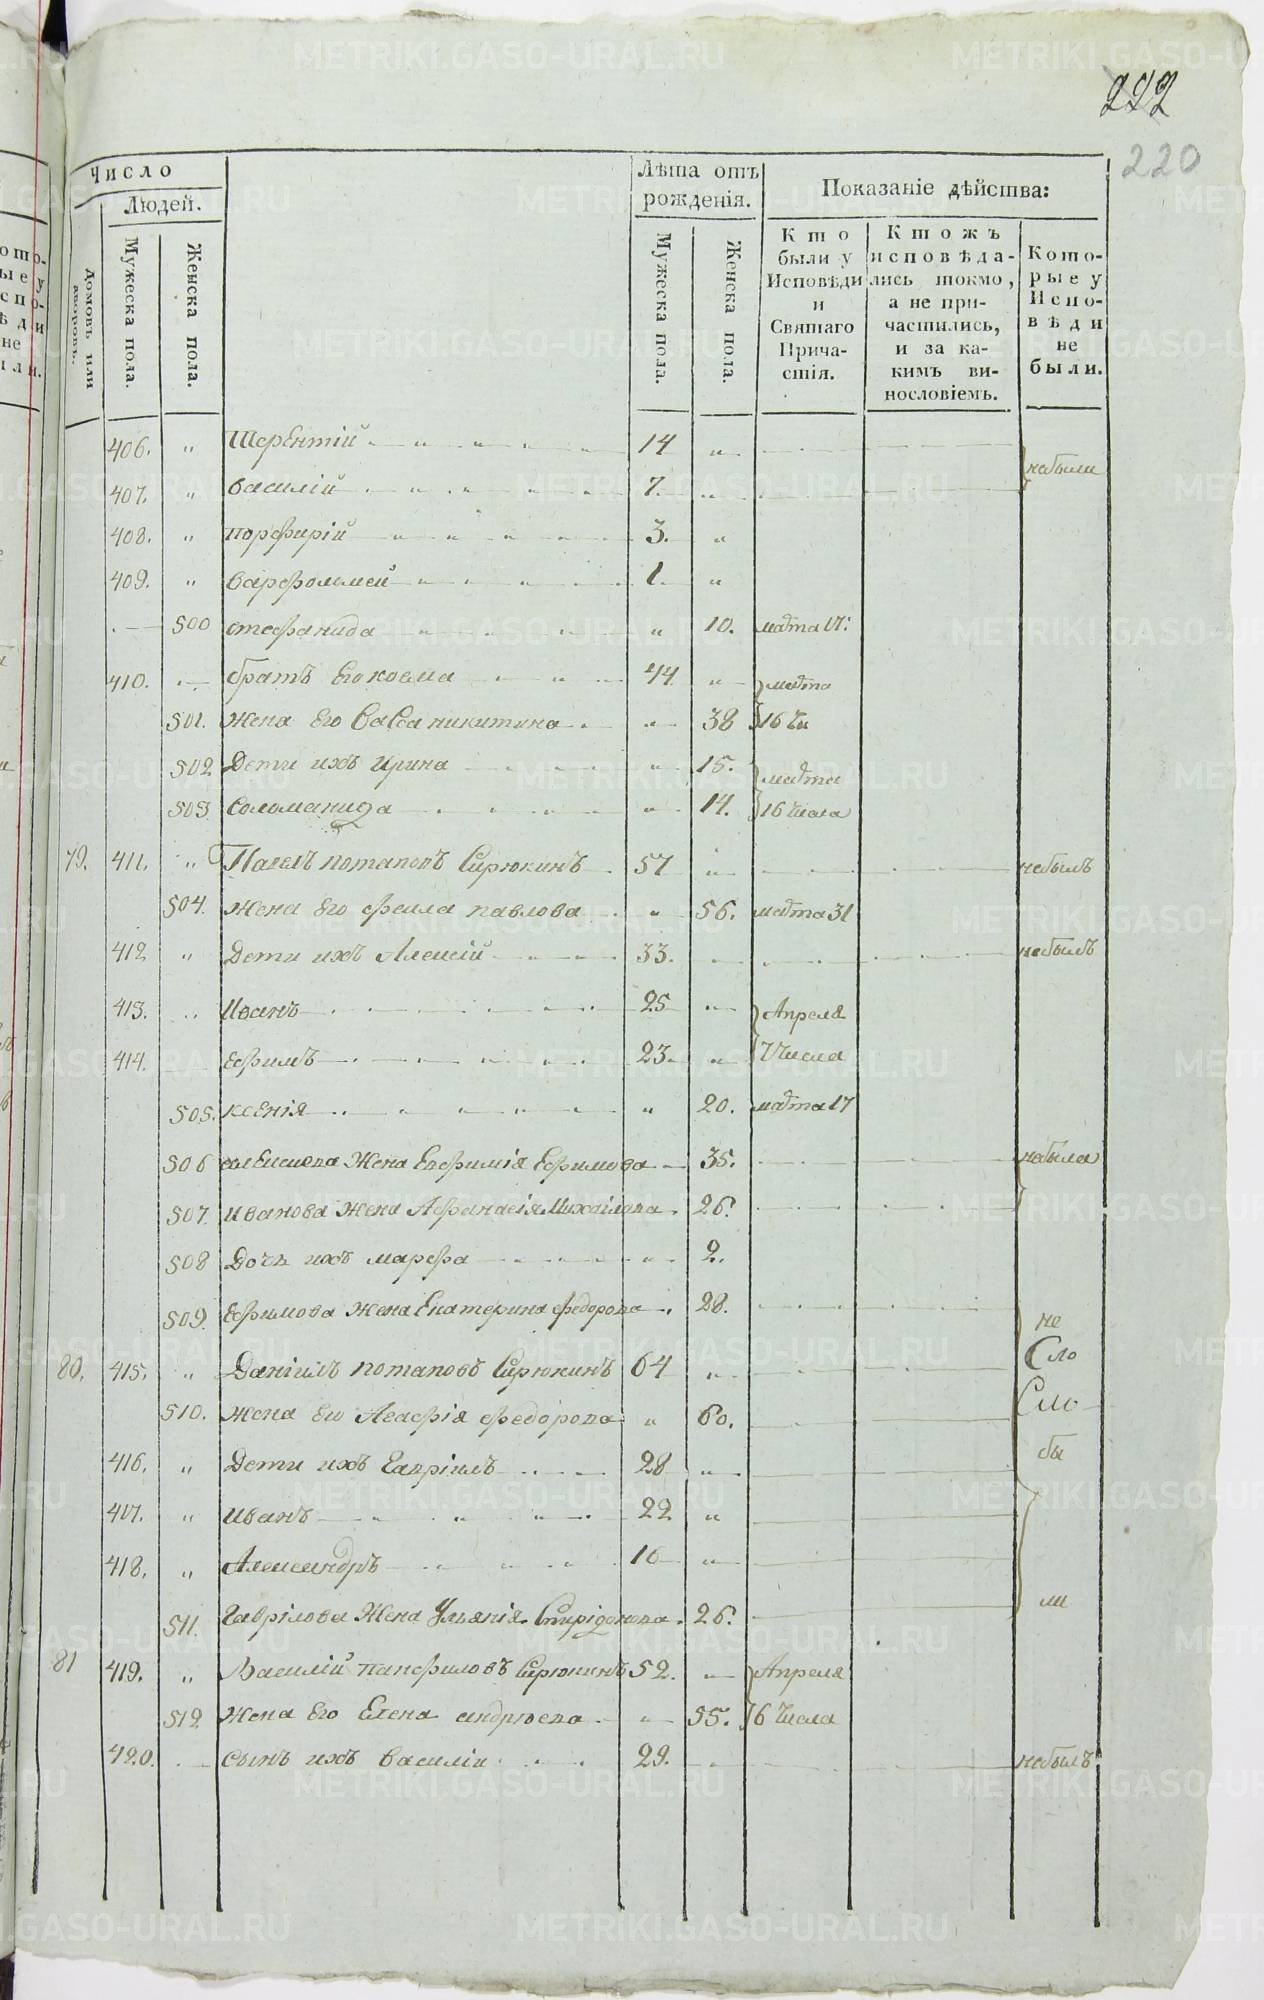 222
220
Число
Людей.
Домовъ или дворовъ.
Мужеска пола.
Женска пола.
Лѣта отъ рожденія.
Мужеска пола.
Женска пола.
Показаніе дѣйства:
Кто были у Исповѣди и Святаго Причастія.
Ктожъ исповѣдались токмо, а не причастились, и за какимъ винословіемъ.
Которые у Исповѣди не были.
406. " Терентій 14 "
небыли
407. " Василій 7. "
408. " порфирій 3. "
409. " варфоломей 1. "
500 стефанида " 10. марта 17:
410. братъ Его козма 44 " марта
501. жена Его Савва никитина " 38 16 чи
502 Дети ихъ Ирина " 15. марта
503. Соломанида " 14. 16 числа
79. 411. " Павелъ потаповъ Сирюкинъ 57 " небылъ
504. жена Его феила павлова " 56. марта 31
412 " Дети ихъ Алексій 33. " небылъ
413. " Иванъ 25 " Апреля
414. Ефимъ 23. " 7 числа
505. ксенія " 20. марта 17
506 алексиева жена Евфимія Ефимова 35. небыла
507. иванова жена Афанасія Михаилова 26.
508 Дочь ихъ марфа " 2.
509. Ефимова жена Екатерина федорова 28.
не
80. 415. " Даніилъ потаповъ Сирюкинъ 64 " Сло
510. жена Его Агафія федорова " 60. Сло
416. " Дети ихъ Гавріилъ 28 " бы
417. " иванъ 22 "
418. " Александръ 16 "
511. Гаврілова жена Ульянія Спирідонова 26. ли
81 419. " Василій панфиловъ Сирюкинъ 52. " Апреля
512 жена Его Елена андреева " 55. 6 числа
420. сынъ ихъ василіи 29. " небылъ